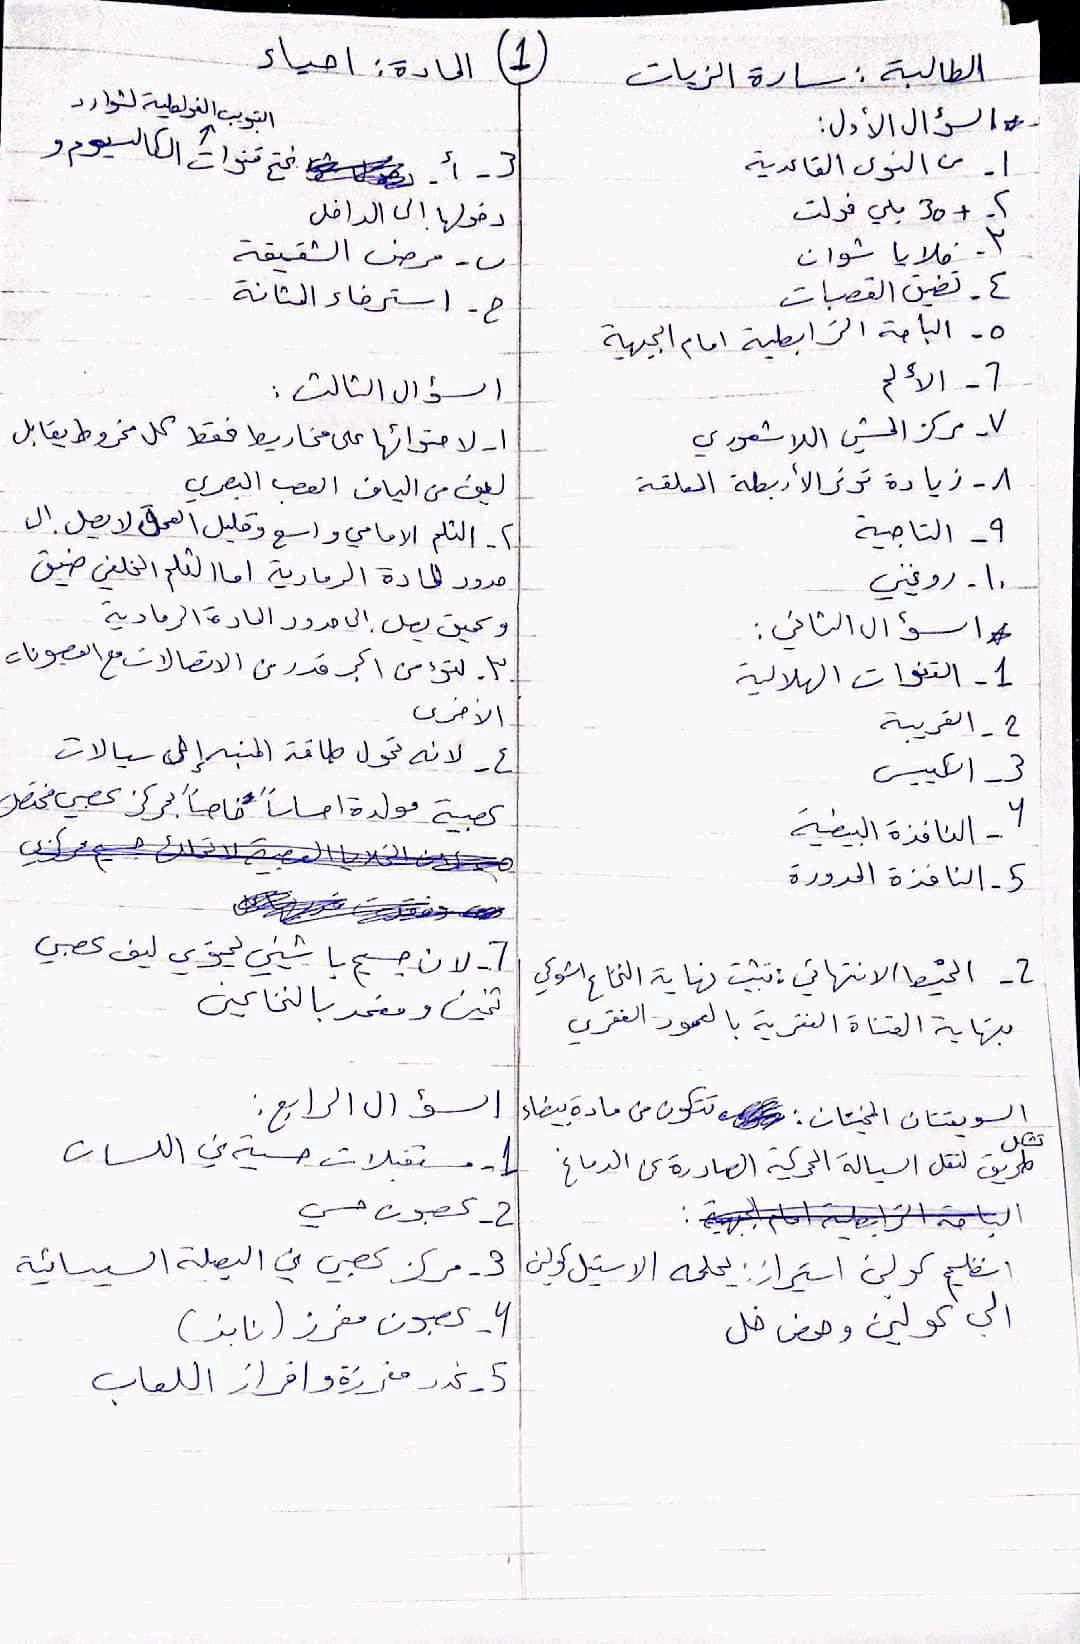 الطالبة: سارة الزيات
(1)
المادة: احياء
السؤال الأول:
1- من النوى القاعدية
٢- +30 ميلي فولت
٣- خلايا شوان
٤- تضيق القصبات
٥- الباحة الترابطية امام الجبهية
6- الألم
٧- مركز المشي اللاشعوري
٨- زيادة توتر الأربطة المعلقة
٩- التاجية
١٠- روفيني
السؤال الثاني:
1- القنوات الهلالية
2- القريبة
3- الكييس
4- النافذة البيضية
5- النافذة المدورة
2- الخيط الانتهائي: تثبت نهاية النخاع الشوكي
بنهاية القناة الفقرية بالعمود الفقري
السويقتان المخيتان: تتكون من مادة بيضاء
تشكل
طريق لنقل السيالة المحركة الصادرة عن الدماغ
الباحة الترابطية امام الجبهية:
انظيم كولين استيراز: يحلمه الاستيل كولين
الى كولين وحمض خل
التبويب الفولطية لشوارد
3- أ- فتح قنوات الكالسيوم و
دخولها إلى الداخل
ب- مرض الشقيقة
ج- استرخاء المثانة
السؤال الثالث:
١- لاحتوائها على مخاريط فقط كل مخروط يقابل
ليف من الياف العصب البصري
٢- الثلم الامامي واسع وقليل العمق لا يصل إلى
حدود المادة الرمادية اما الثلم الخلفي ضيق
وعميق يصل إلى حدود المادة الرمادية
٣- لتؤمن اكبر قدر من الاتصالات مع العصبونات
الأخرى
٤- لانه تحول طاقة المنبه إلى سيالات
عصبية مولدة احساساً خاصاً بمركز عصبي مختص
لان الخلايا العصبية لا تحتوي جسيم مركزي
6- لان جسيم باشيني يحتوي ليف عصبي
ثخين ومغمد بالنخاعين
السؤال الرابع:
1- مستقبلات حسية في اللسان
2- عصبون حسي
3- مركز عصبي في البصلة السيسائية
4- عصبون مفرز (نابذ)
5- غدد مفرزة وافراز اللعاب